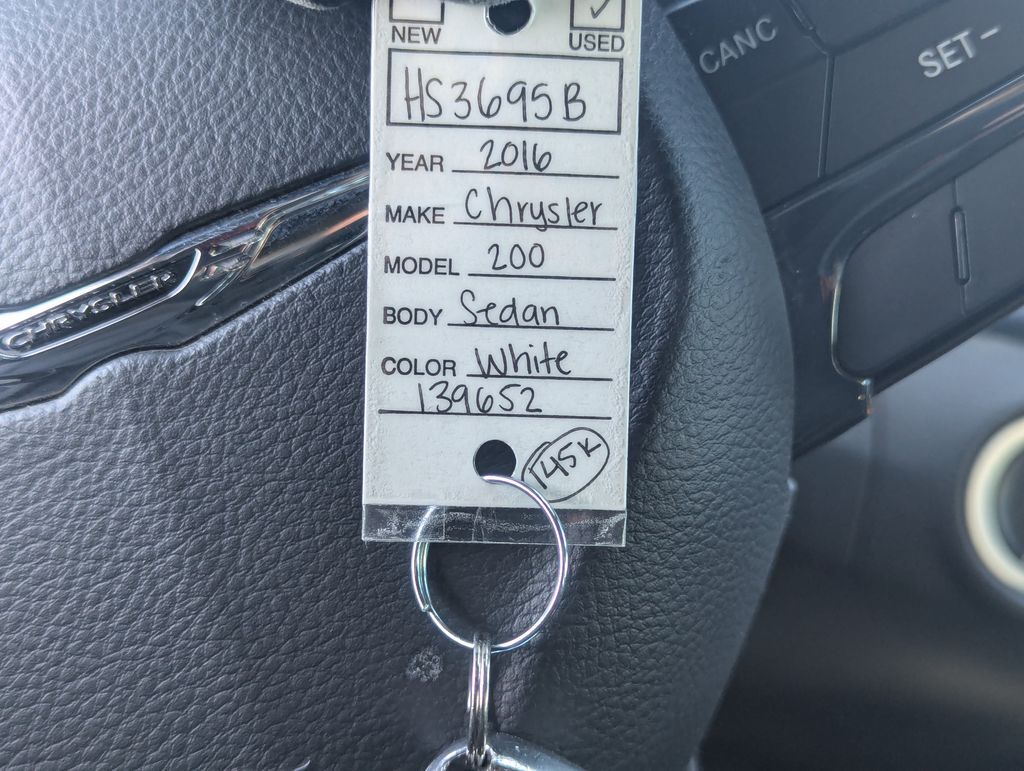 NEW USED
HS3695B
YEAR 2016
MAKE Chrysler
MODEL 200
BODY Sedan
COLOR White
139652
145K
CHRYSLER
CANC
SET -